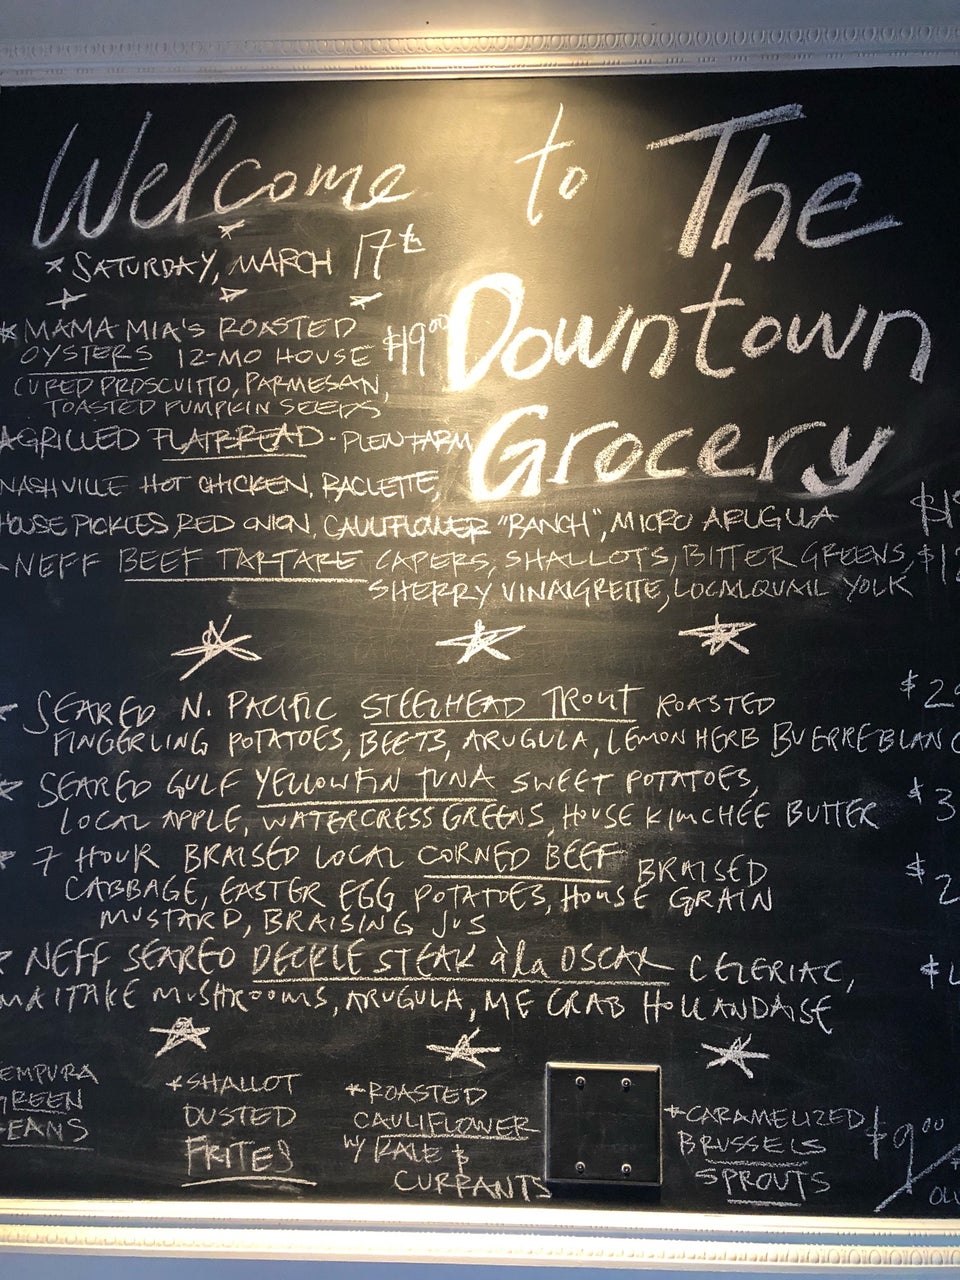 Welcome to The
Downtown
Grocery
* SATURDAY, MARCH 17th
* MAMA MIA'S ROASTED
OYSTERS 12-MO HOUSE $19.00
CURED PROSCUITTO, PARMESAN,
TOASTED PUMPKIN SEEDS
GRILLED FLATBREAD - PLEN FARM
NASHVILLE HOT CHICKEN, RACLETTE,
HOUSE PICKLES, RED ONION, CAULIFLOWER "RANCH", MICRO ARUGULA
NEFF BEEF TARTARE CAPERS, SHALLOTS, BITTER GREENS,
SHERRY VINAIGRETTE, LOCAL QUAIL YOLK
SEARED N. PACIFIC STEELHEAD TROUT ROASTED
FINGERLING POTATOES, BEETS, ARUGULA, LEMON HERB BUERRE BLANC
SEARED GULF YELLOWFIN TUNA SWEET POTATOES,
LOCAL APPLE, WATERCRESS GREENS, HOUSE KIMCHEE BUTTER
* 7 HOUR BRAISED LOCAL CORNED BEEF BRAISED
CABBAGE, EASTER EGG POTATOES, HOUSE GRAIN
MUSTARD, BRAISING JUS
NEFF SEARED DECKLE STEAK à la OSCAR CELERIAC,
MAITAKE MUSHROOMS, ARUGULA, ME CRAB HOLLANDAISE
EMPURA
GREEN
EANS
*SHALLOT
DUSTED
FRITES
*ROASTED
CAULIFLOWER
w/ KALE &
CURRANTS
*CARAMELIZED
BRUSSELS
SPROUTS
$9.00